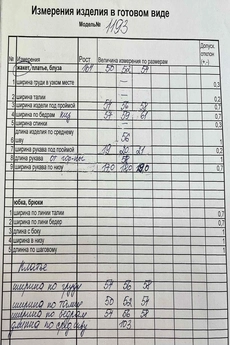 Измерения изделия в готовом виде
Модель№ 1193
№ Измерения Рост Величина измерения по размерам Допуск. отклон (+ -)
жакет, платье, блуза 164 50 52 54
1 ширина груди в узком месте — 0,3
2 ширина талии —
3 ширина изделия под проймой 54 56 58
4 ширина по бедрам низ 57 59 61 0,7
5 ширина спинки — 0,3
длина изделия по среднему
6 шву 56
7 ширина рукава под проймой 19 20 21 0,2
8 длина рукава 58
9 ширина рукава по низу
юбка, брюки
1 ширина по линии талии
2 ширина по лини бедер 0,7
3 длина с боку
4 ширина в низу
5 длинна по шаговому
Платье
ширина по груди 54 56 58
ширина по талии 50 52 54
ширина по бедрам 54 56 58
длина по среднему 103